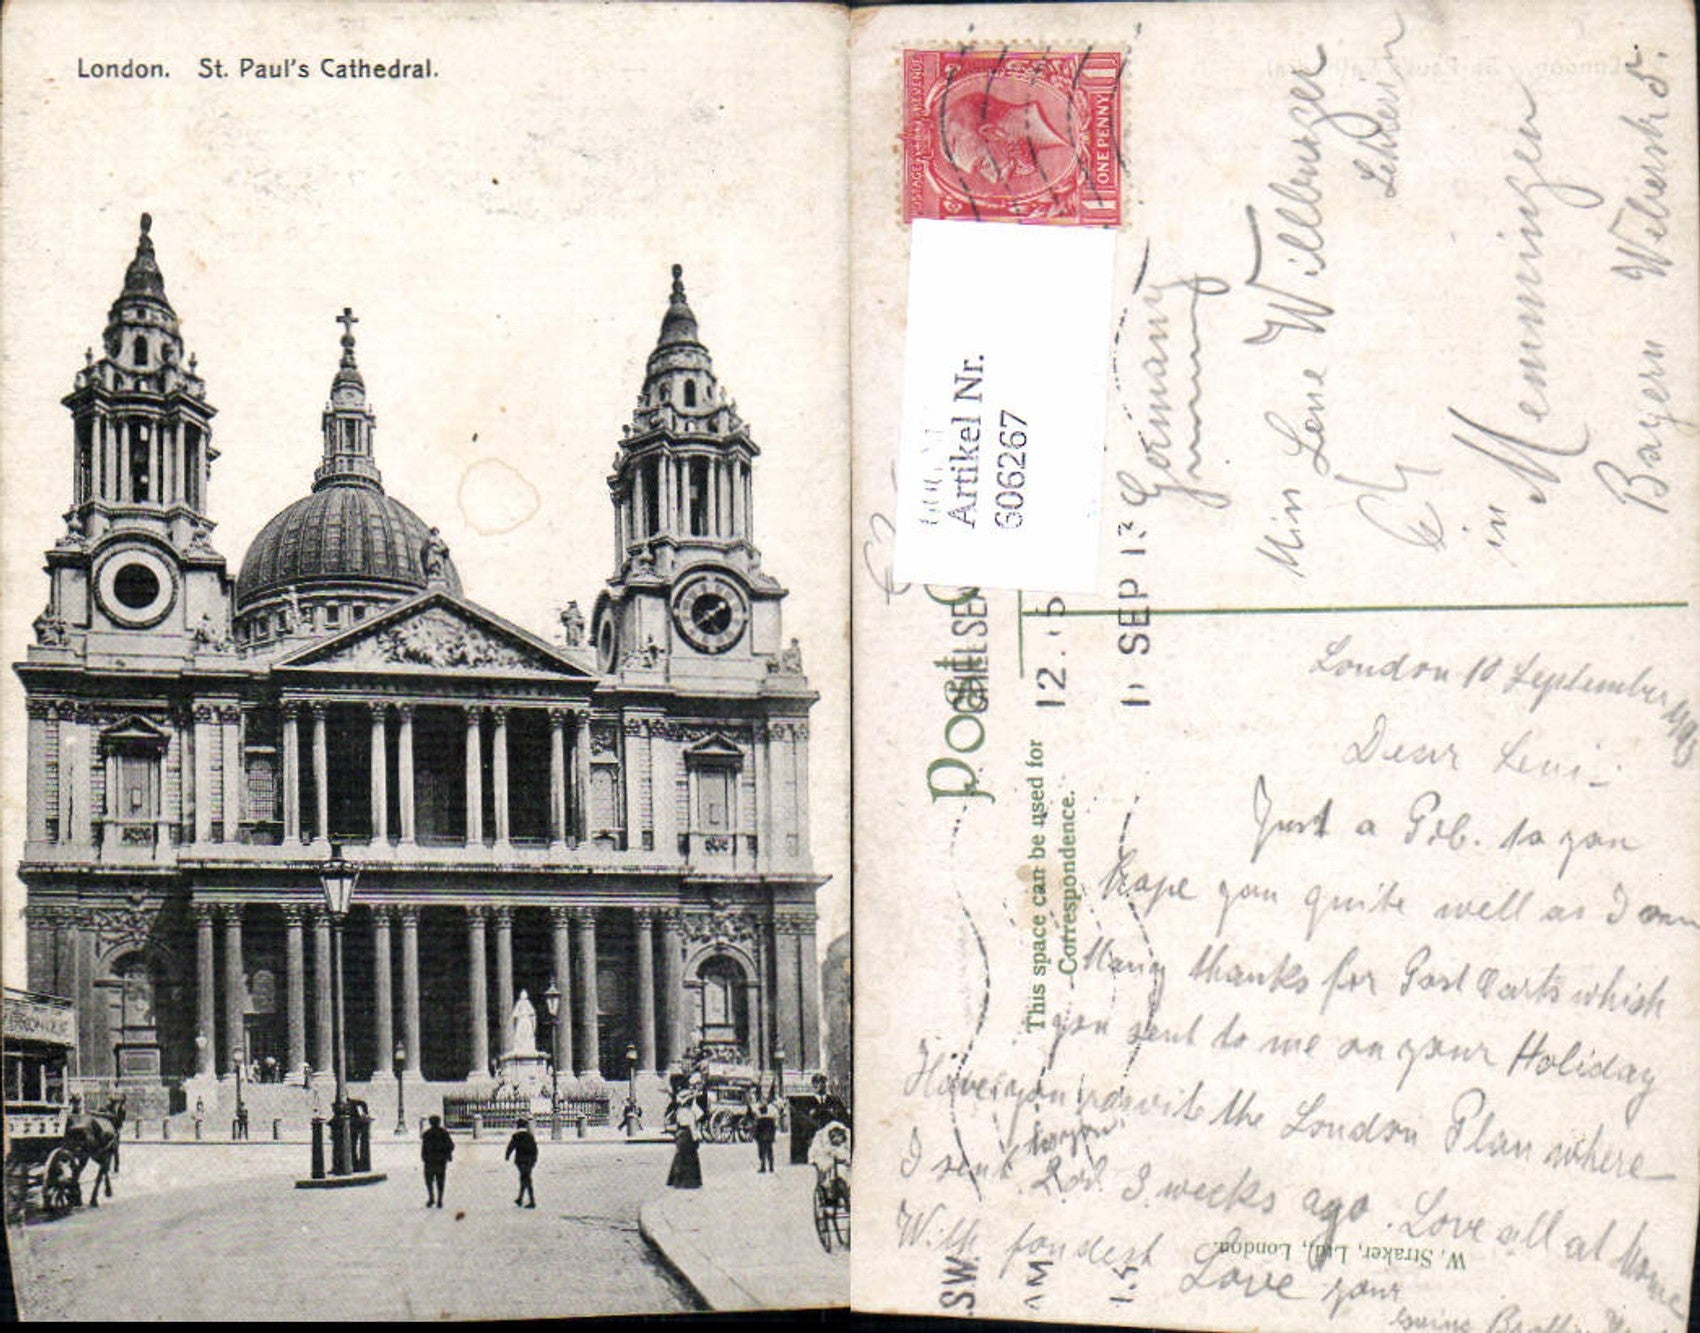 London. St. Paul's Cathedral.
POSTAGE REVENUE
ONE PENNY
Artikel Nr.
606267
Post
CHELSEA
S.W.
12.15
AM
11 SEP 13
This space can be used for
Correspondence.
Germany
Miss Lene Wilburger
in Memmingen
Bayern
London 10 September 1913
Dear Leni
Just a P.c. to you
hope you quite well as I am
Many thanks for Post Carts which
you sent to me on your Holiday
Have you the London Plan where
I sent 3 weeks ago. Love all at home
With fondest Love your
W. Straker, Ltd., London.